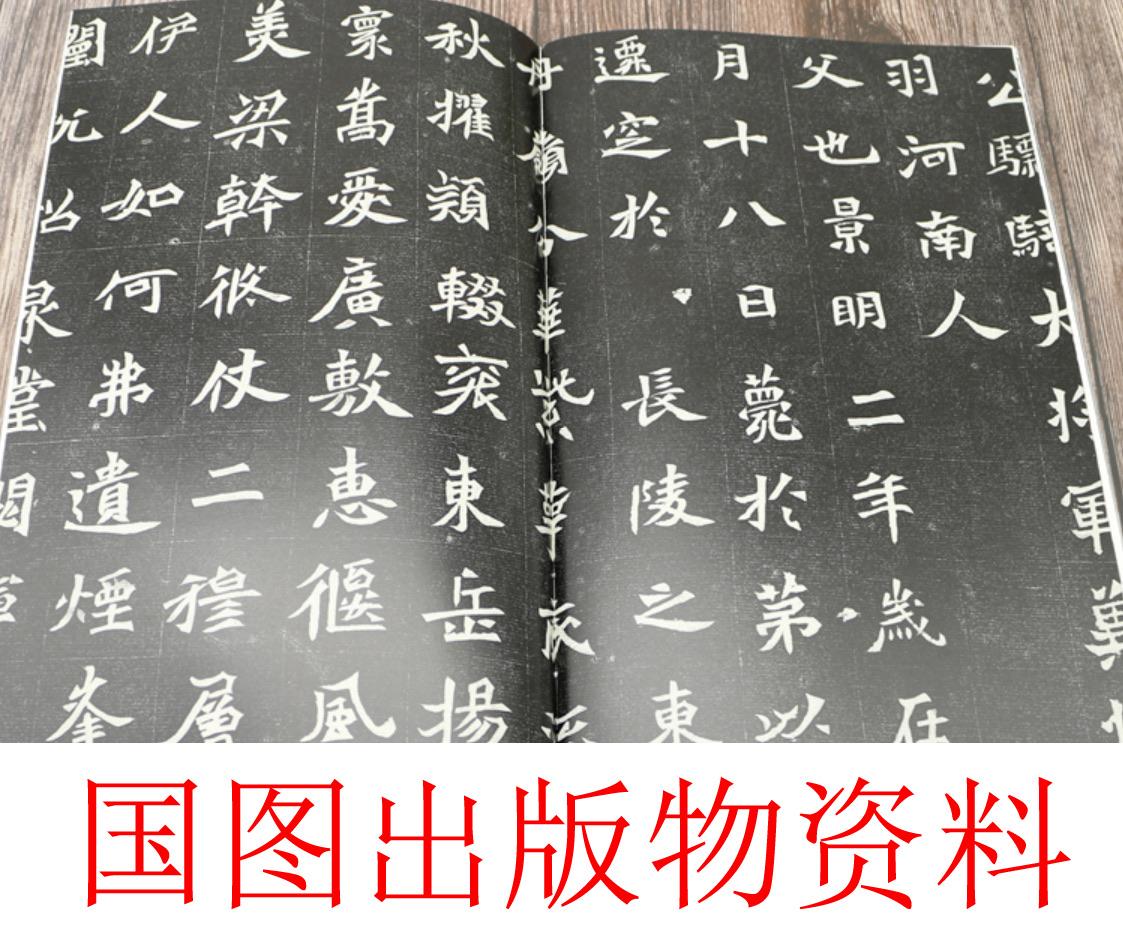 公驃騎大將軍
羽河南人
父也景明二年歲在
月十八日薨於第以
遷窆於長陵之東
分華紫
秋擢穎輟東岳揚
愛廣敷惠偃風
美梁幹仗二穆層
伊人如何弗遺煙峯
国图出版物资料